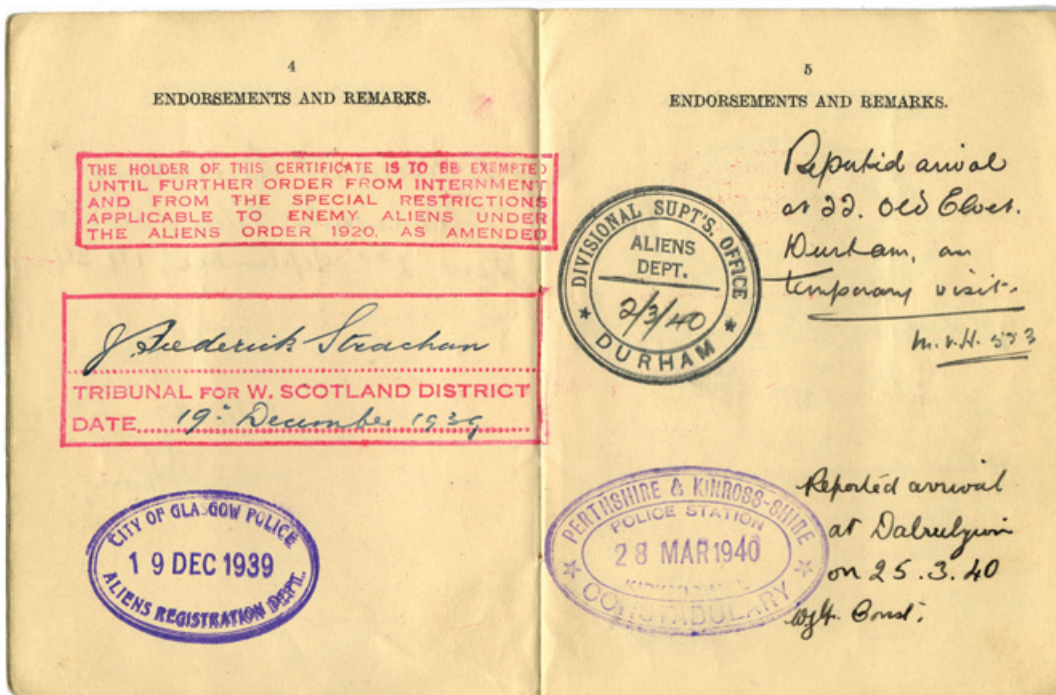 4
ENDORSEMENTS AND REMARKS.
THE HOLDER OF THIS CERTIFICATE IS TO BE EXEMPTED
UNTIL FURTHER ORDER FROM INTERNMENT
AND FROM THE SPECIAL RESTRICTIONS
APPLICABLE TO ENEMY ALIENS UNDER
THE ALIENS ORDER 1920. AS AMENDED
J Frederick Strachan
TRIBUNAL FOR W. SCOTLAND DISTRICT
DATE 19: December 1939
CITY OF GLASGOW POLICE
19 DEC 1939
ALIENS REGISTRATION DEPT.
5
ENDORSEMENTS AND REMARKS.
DIVISIONAL SUPT'S. OFFICE
ALIENS
DEPT.
2/3/40
DURHAM
Reported arrival
at 22. Old Elvet.
Durham, on
temporary visit.
PERTHSHIRE & KINROSS-SHIRE
POLICE STATION
28 MAR 1940
CONSTABULARY
Reported arrival
at
on 25.3.40
Const.